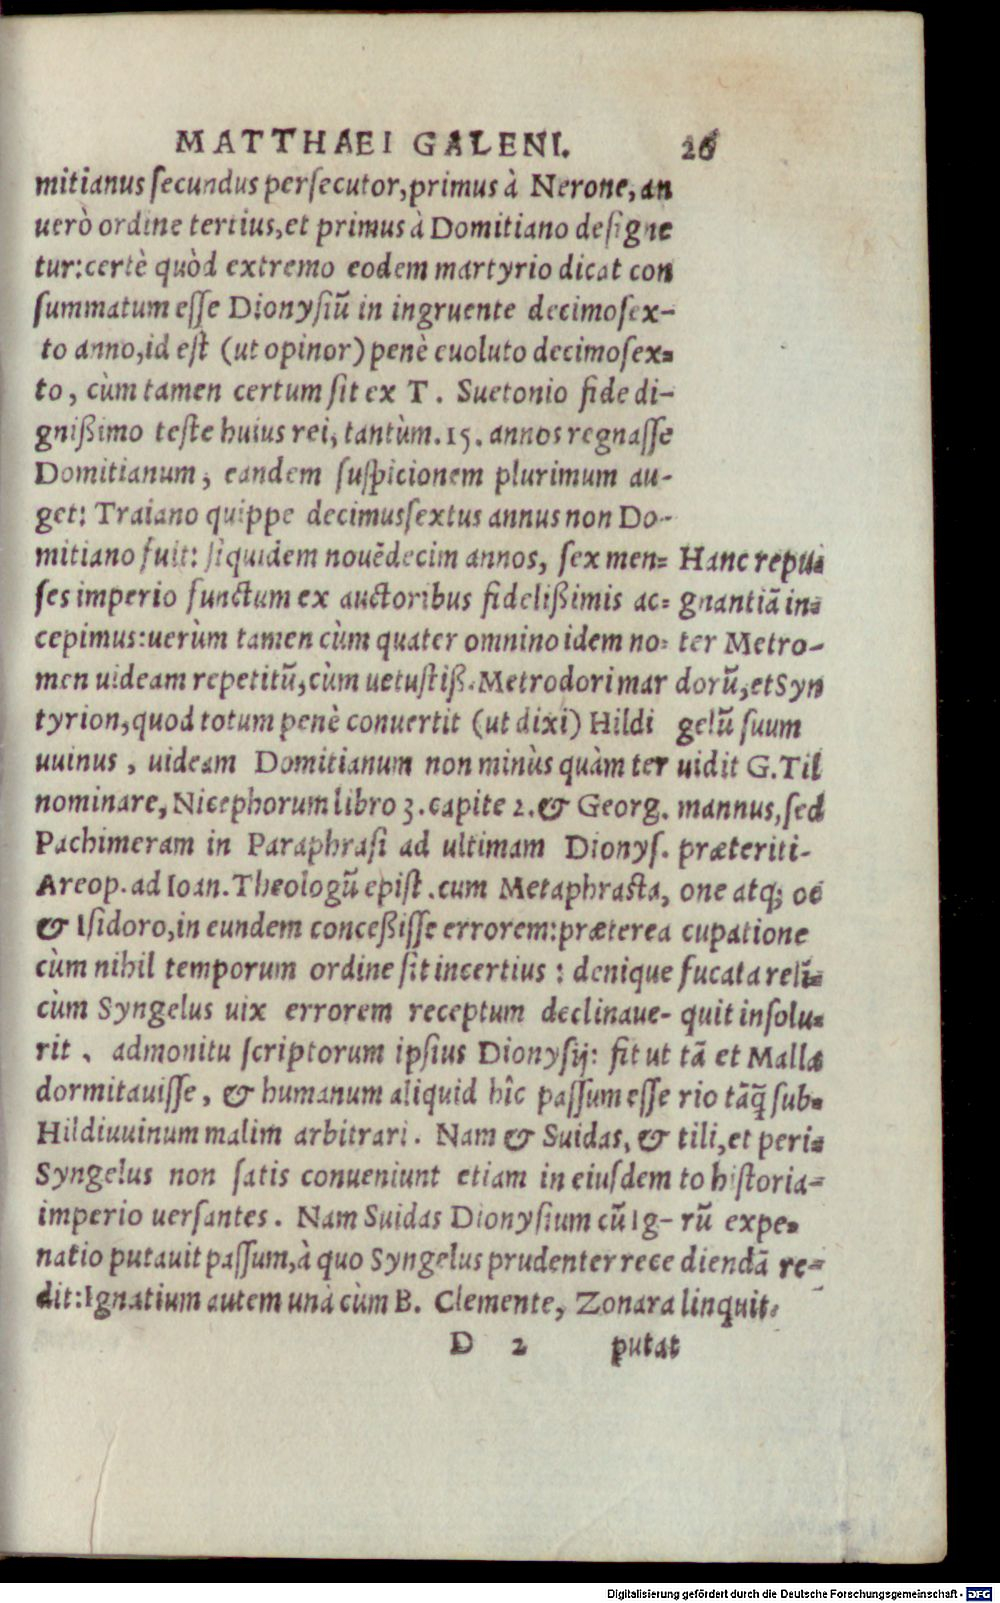 MATTHAEI GALENI. 26
mitianus secundus persecutor, primus à Nerone, an
uerò ordine tertius, et primus à Domitiano designe
tur: certè quòd extremo eodem martyrio dicat con
summatum esse Dionysiũ in ingruente decimosex-
to anno, id est (ut opinor) penè euoluto decimosex=
to, cùm tamen certum sit ex T. Suetonio fide di-
gnißimo teste huius rei, tantùm .15. annos regnasse
Domitianum, eandem suspicionem plurimum au-
get: Traiano quippe decimussextus annus non Do-
mitiano fuit: siquidem nouẽdecim annos, sex men=
ses imperio functum ex auctoribus fidelißimis ac=
cepimus: uerùm tamen cùm quater omnino idem no=
men uideam repetitũ, cùm uetustiß. Metrodori mar
tyrion, quod totum penè conuertit (ut dixi) Hildi
uuinus, uideam Domitianum non minùs quàm ter
nominare, Nicephorum libro 3. capite 2. & Georg.
Pachimeram in Paraphrasi ad ultimam Dionys.
Areop. ad Ioan. Theologũ epist. cum Metaphrasta,
& Isidoro, in eundem conceßisse errorem: præterea
cùm nihil temporum ordine sit incertius: denique
cùm Syngelus uix errorem receptum declinaue-
rit, admonitu scriptorum ipsius Dionysij: fit ut
dormitauisse, & humanum aliquid hîc passum esse
Hildiuuinum malim arbitrari. Nam & Suidas, &
Syngelus non satis conueniunt etiam in eiusdem
imperio uersantes. Nam Suidas Dionysium cũ Ig-
natio putauit passum, à quo Syngelus prudenter rece
dit: Ignatium autem unà cùm B. Clemente, Zonara
Hanc repu=
gnantiã in=
ter Metro-
dorũ, et Syn
gelũ suum
uidit G. Til
mannus, sed
præteriti-
one atq; oc
cupatione
fucata relĩ=
quit insolu=
tã et Malla
rio tãq̃ sub=
tili, et peri=
to historia=
rũ expe=
diendã re=
linquit.
D 2 putat
Digitalisierung gefördert durch die Deutsche Forschungsgemeinschaft - DFG